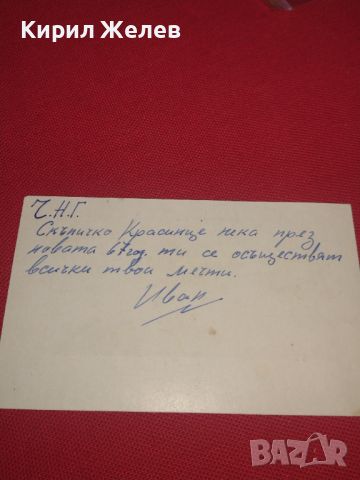 Кирил Желев
Ч.Н.Г.
Скъпичко Красинце нека през
новата 67 год. ти се осъществят
всички твои мечти.
Иван
BAZAR